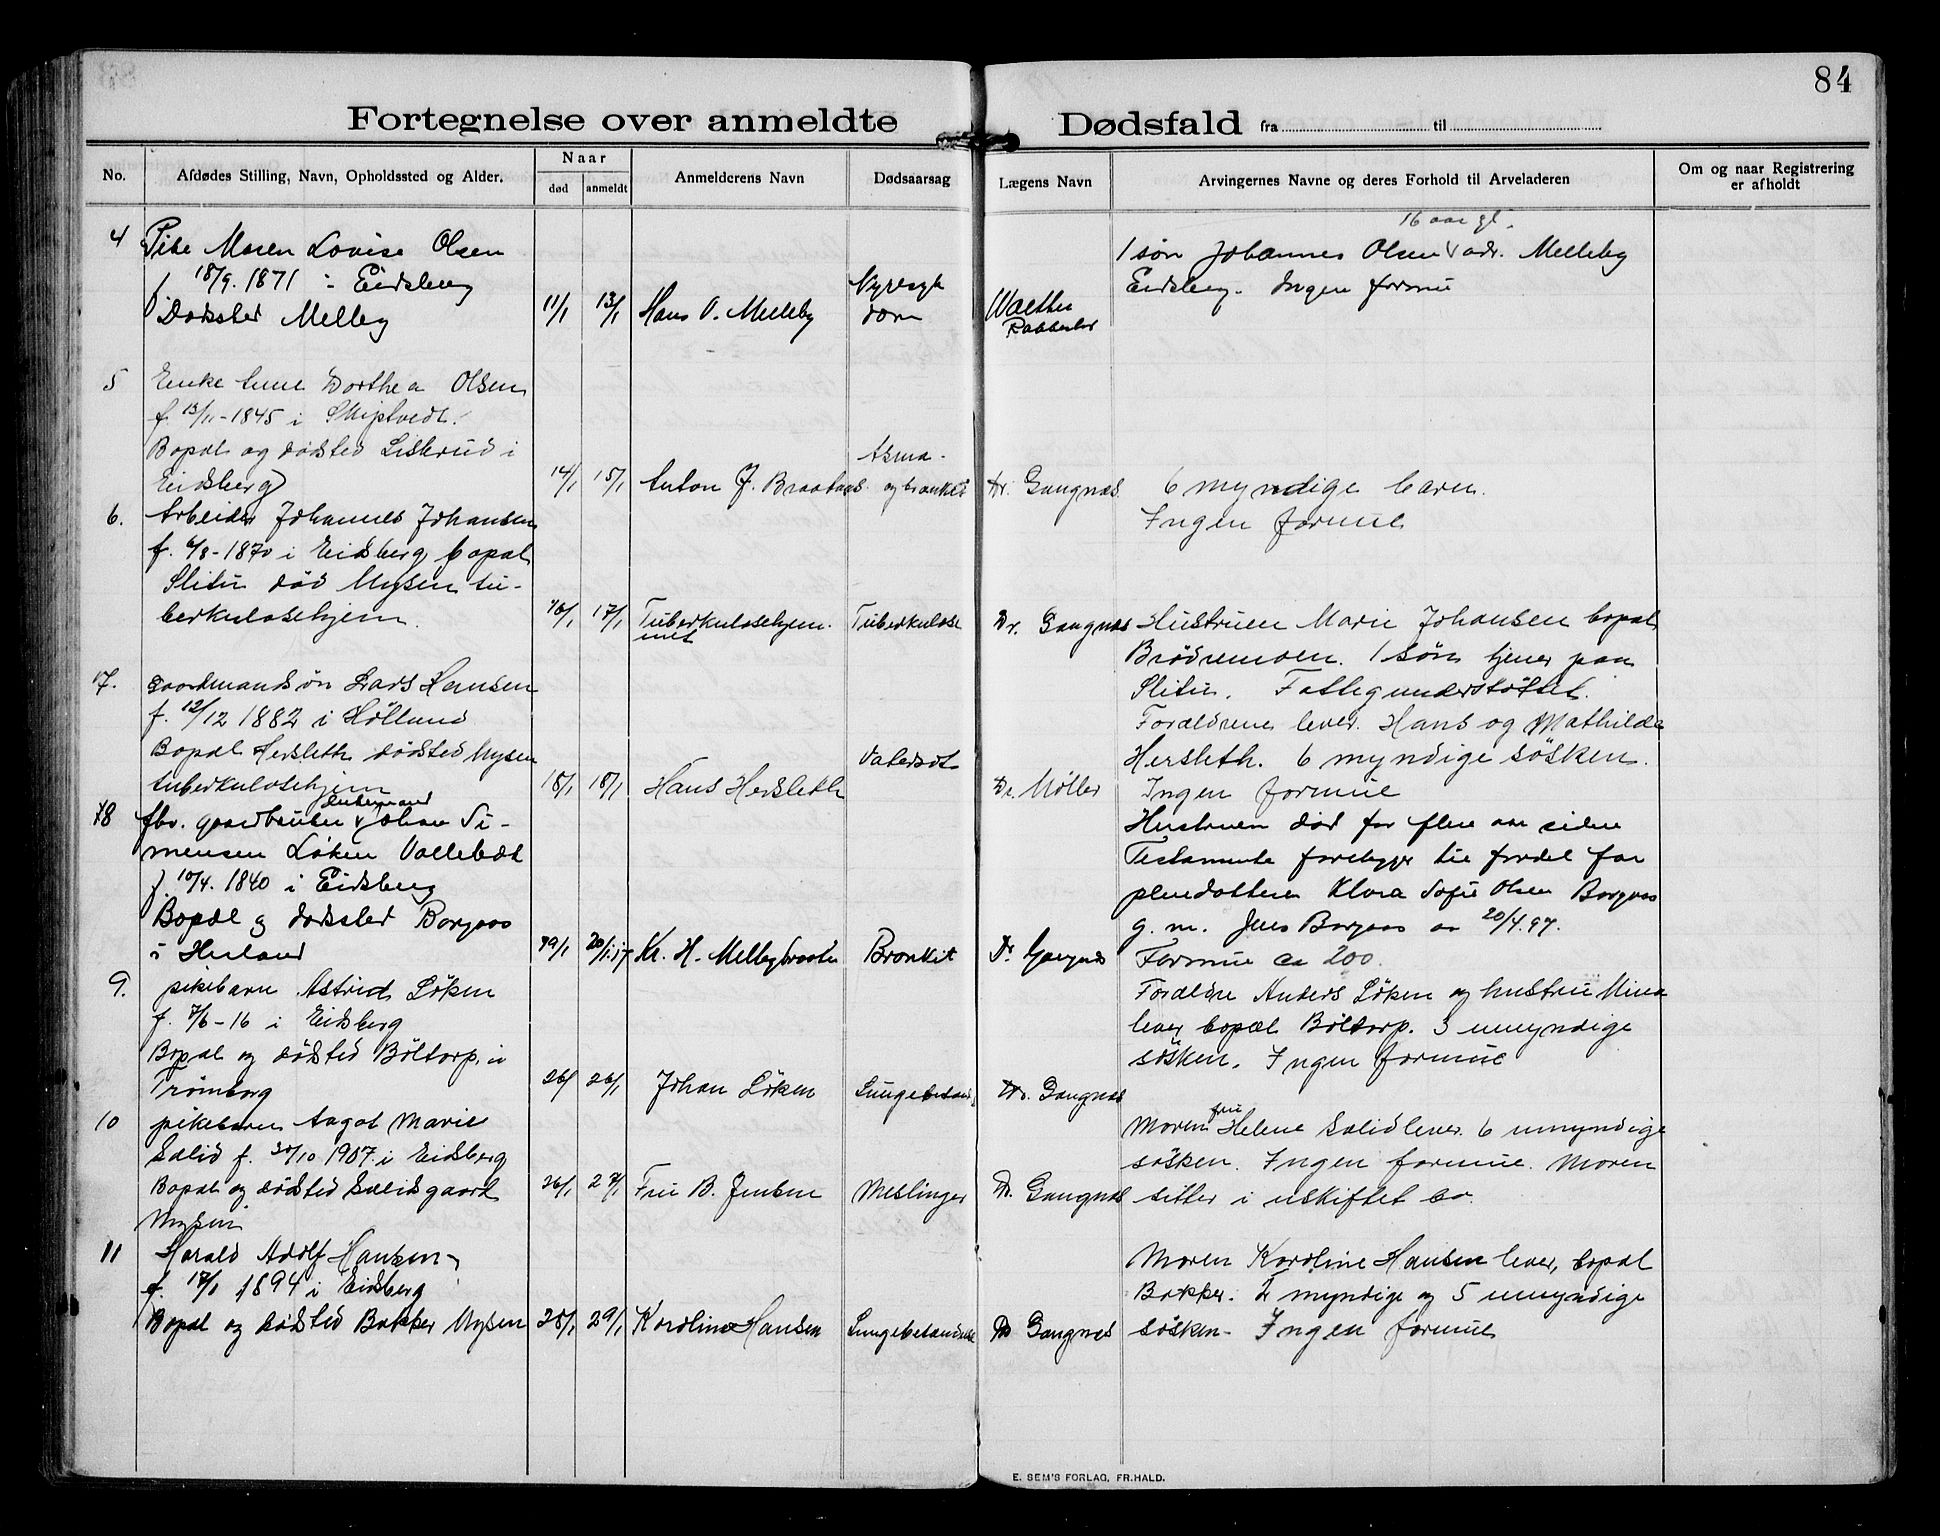 84
Fortegnelse over anmeldte Dødsfald fra til
No.
Afdødes Stilling, Navn, Opholdssted og Alder.
Naar
død anmeldt
Anmelderens Navn
Dødsaarsag
Lægens Navn
Arvingernes Navne og deres Forhold til Arveladeren
Om og naar Registrering
er afholdt
4 Pike Maren Lovise Olsen
f 18/9. 1871 i Eidsberg
Dødssted Melleby
11/1 13/1 Hans O. Melleby
Nyresyk
dom
Walther
Rakkestad
16 aar gl.
1 søn Johannes Olsen adr. Melleby
Eidsberg. Ingen formue
5 Enke Anne Dorthea Olsen
f. 13/11-1845 i Skiptvedt.
Bopæl og dødsted Lislerud i
Eidsberg
14/1 15/1 Anton J. Braaten
Asma-
og bronkit
Dr. Gangnæs.
6 myndige barn.
Ingen formue
6. Arbeider Johannes Johansen
f. 6/8-1870 i Eidsberg, bopæl
Slitu død Mysen tu-
berkulosehjem.
16/1 17/1 Tuberkulosehjem-
met
Tuberkulose
Dr. Gangnæs
Hustruen Marie Johansen bopæl
Brødremoen. 1 søn tjener paa
Slitu. Fattigunderstøttet.
7. gaardmandsøn Lars Hansen
f. 12/12 1882 i Hølland
Bopæl Hersleth dødsted Mysen
tuberkulosehjem
18/1 18/1 Hans Hersleth
Vatersot
Dr. Møller
Forældrene lever. Hans og Mathilde
Hersleth. 6 myndige søsken.
Ingen formue
8 fhv. gaardbruker enkemand Johan Si-
mensen Løken Vallebæk
f. 10/4. 1840 i Eidsberg
Bopæl og dødssted Borgaas
i Herland
19/1 20/1.17 Kr. H. Mellegbraaten
Bronkit
Dr Gangnæs
Hustruen død for flere aar siden
Testamente foreligger til fordel for
pleiedatteren Klara Sofie Olsen Borgaas
g. m. Jens Borgaas av 20/4.97.
Formue ca 200.
9. pikebarn Astrid Løken
f. 7/6-16 i Eidsberg
Bopæl og dødsted Böltorp i
Trömborg
26/ 26/1 Johan Løken
Lungebetænd.
Dr. Gangnæs
Forældre Anders Løken og hustru Mina
lever bopæl Böltorp. 3 umyndige
søsken. Ingen formue
10 pikebarn Aagot Marie
Salid f. 30/10 1907. i Eidsberg
Bopæl og dødsted Salidgaard
Mysen
26/1 27/1 Fru B. Jensen
Meslinger
Dr. Gangnæs
Moren fru Helene Salid lever. 6 umyndige
søsken. Ingen formue. Moren
sitter i uskiftet bo.
11 Harald Adolf Hansen
f. 17/1 1894 i Eidsberg
Bopæl og dødsted Bakker Mysen
28/1 29/1 Karoline Hansen
Lungebetændelse
Dr Gangnæs
Moren Karoline Hansen lever, bopæl
Bakker. 2 myndige og 5 umyndige
søsken- Ingen formue
E. SEM'S FORLAG, FR.HALD.